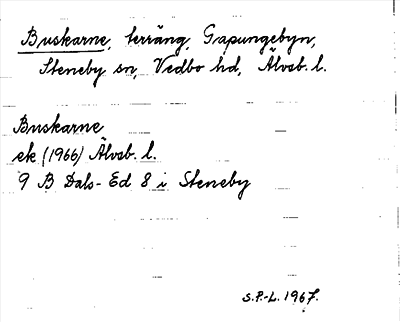 Buskarne, terräng, Gapungebyn,
Steneby sn, Vedbo hd, Älvsb. l.
Buskarne
ek (1966) Älvsb. l.
9 B Dals-Ed 8 i Steneby
S.P.-L. 1967.